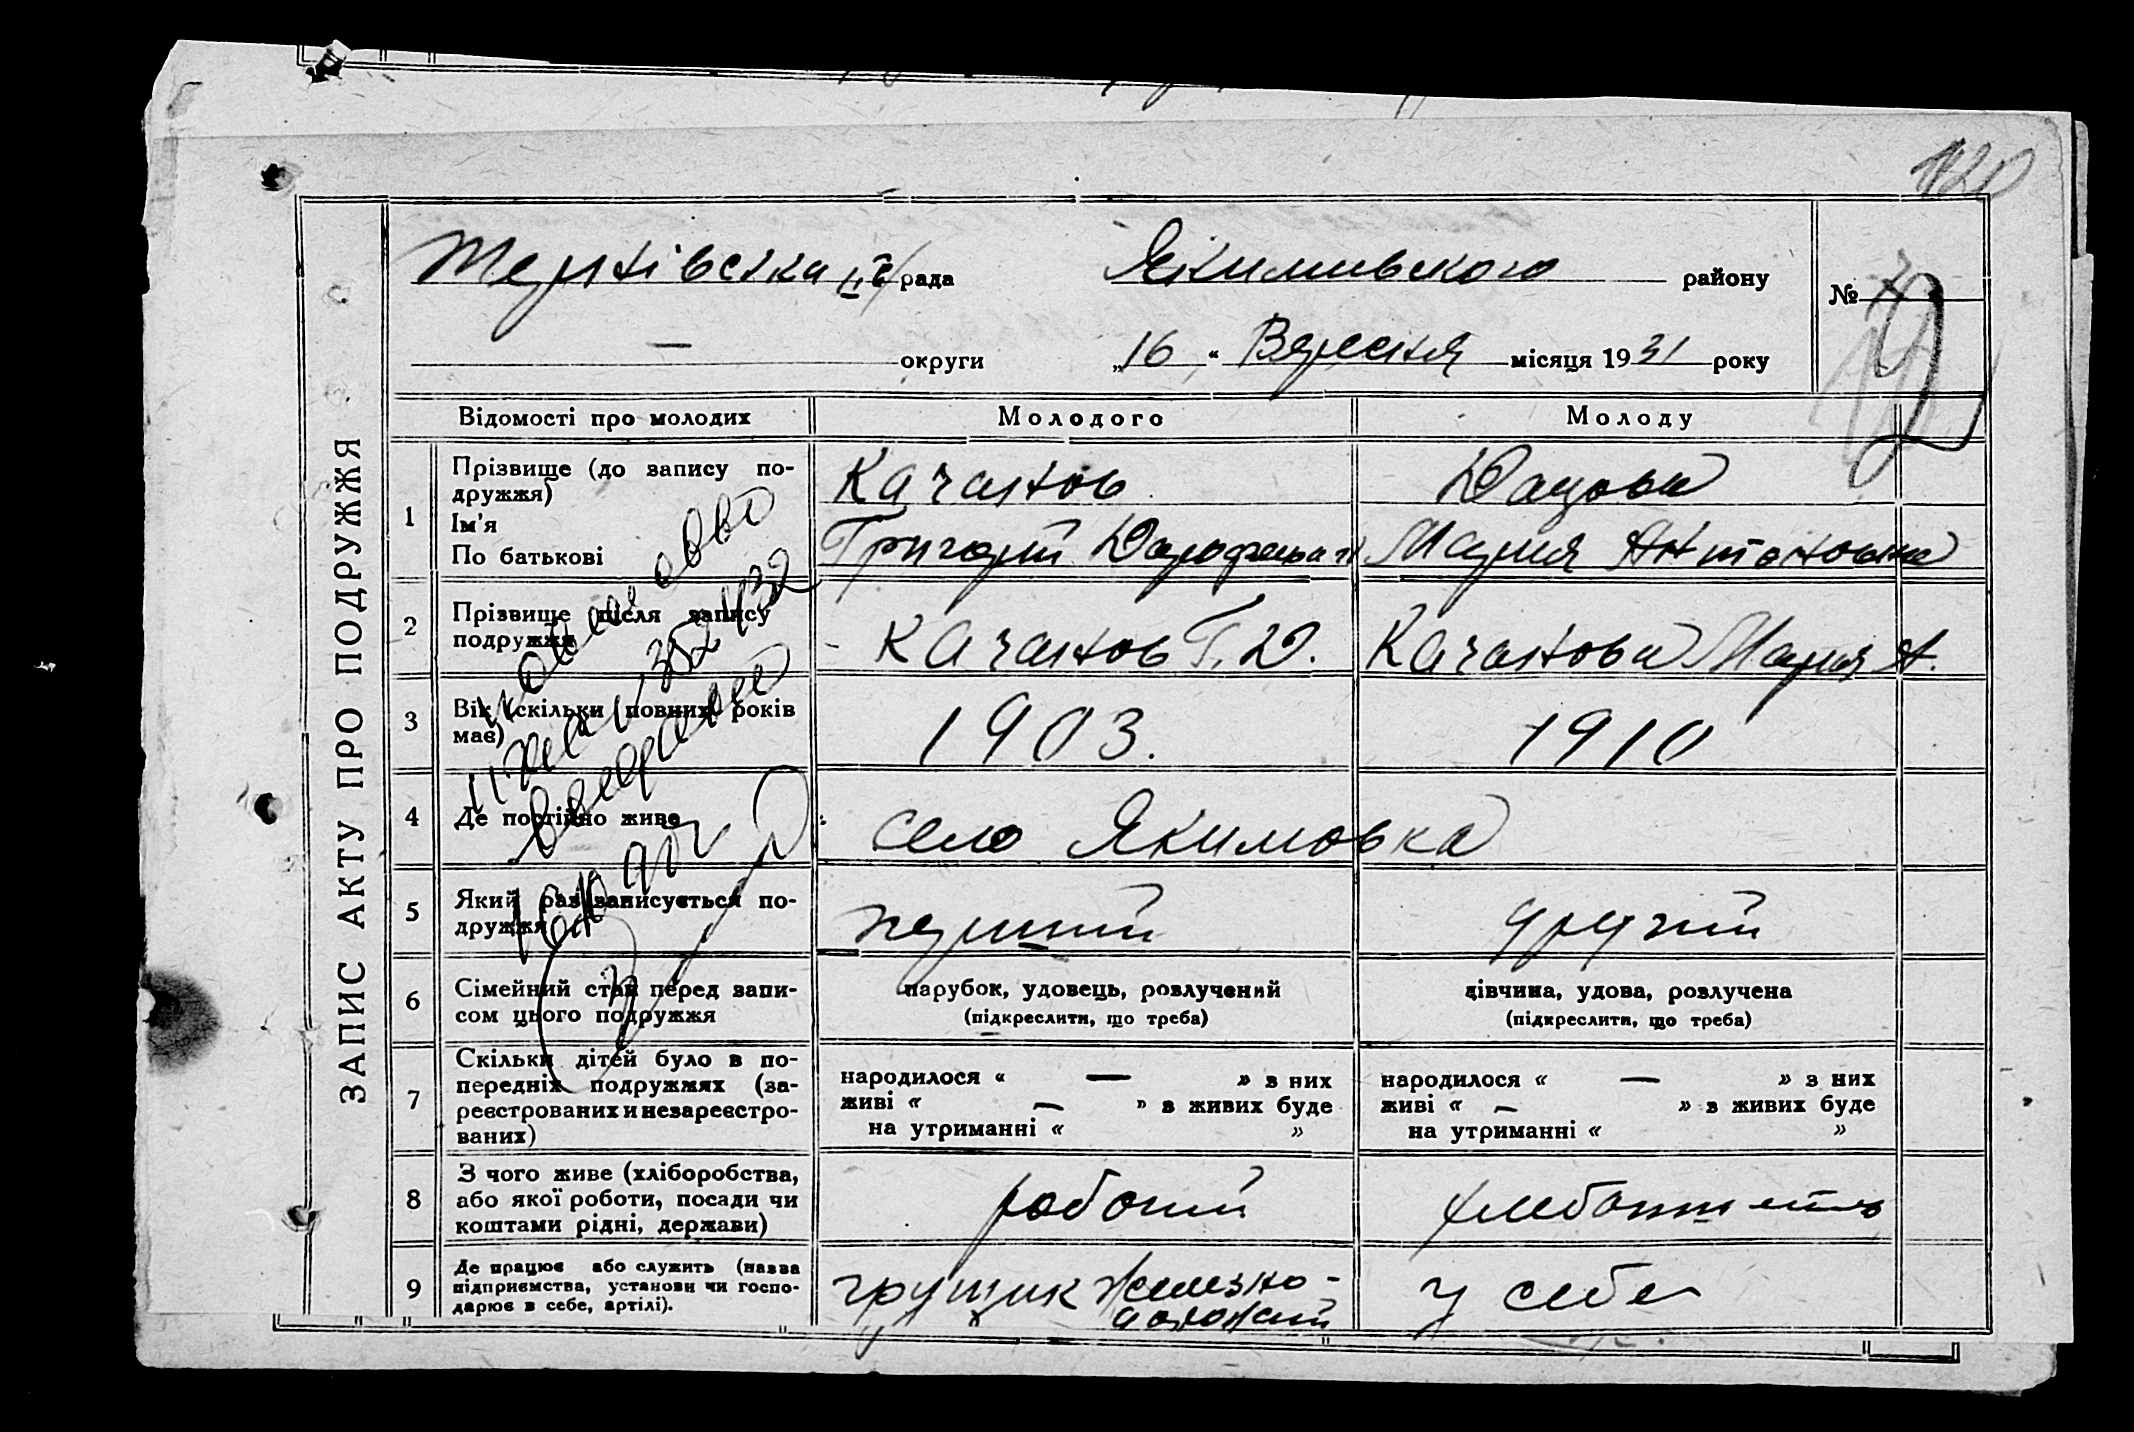 120
ЗАПИС АКТУ ПРО ПОДРУЖЖЯ
рада
Якимивського району
№
— округи
„16“ Вересня місяця 1931 року
Відомості про молодих
Молодого
Молоду
1
Прізвище (до запису по-
дружжя)
Ім'я
По батькові
Качанов
Григорій
Дацова
Мария Антоновна
2
Прізвище після запису
подружжя
Качанов Г. Д.
Качанова Мария А.
3
Вік (скільки повних років
має)
1903.
1910
4
Де постійно живе
село Якимовка
5
Який раз записується по-
дружжя
перший
другий
6
Сімейний стан перед запи-
сом цього подружжя
парубок, удовець, розлучений
(підкреслити, що треба)
дівчина, удова, розлучена
(підкреслити, що треба)
7
Скільки дітей було в по-
передніх подружжях (за-
реєстрованих и незареєстро-
ваних)
народилося « — » з них
живі « — » з живих буде
на утриманні « »
народилося « — » з них
живі « — » з живих буде
на утриманні « »
8
З чого живе (хліборобства,
або якої роботи, посади чи
коштами рідні, держави)
робочий
9
Де працює або служить (назва
підприємства, установи чи госпо-
дарює в себе, артілі).
грущик Железно-
у себе